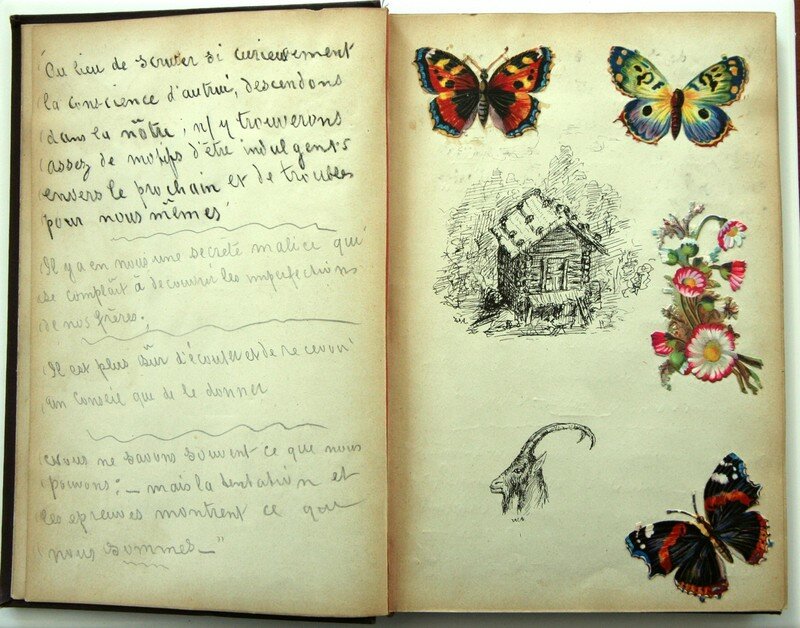 "Au lieu de scruter si curieusement
la conscience d'autrui, descendons
dans la nôtre, n/y trouverons
assez de motifs d'être indulgents
envers le prochain et de troubles
pour nous mêmes"
Il y a en nous une secrète malice qui
se complaît à découvrir les imperfections
de nos frères.
Il est plus sûr d'écouter et de recevoir
un conseil que de le donner
Nous ne savons souvent ce que nous
pouvons: – mais la tentation et
les épreuves montrent ce que
nous sommes – "